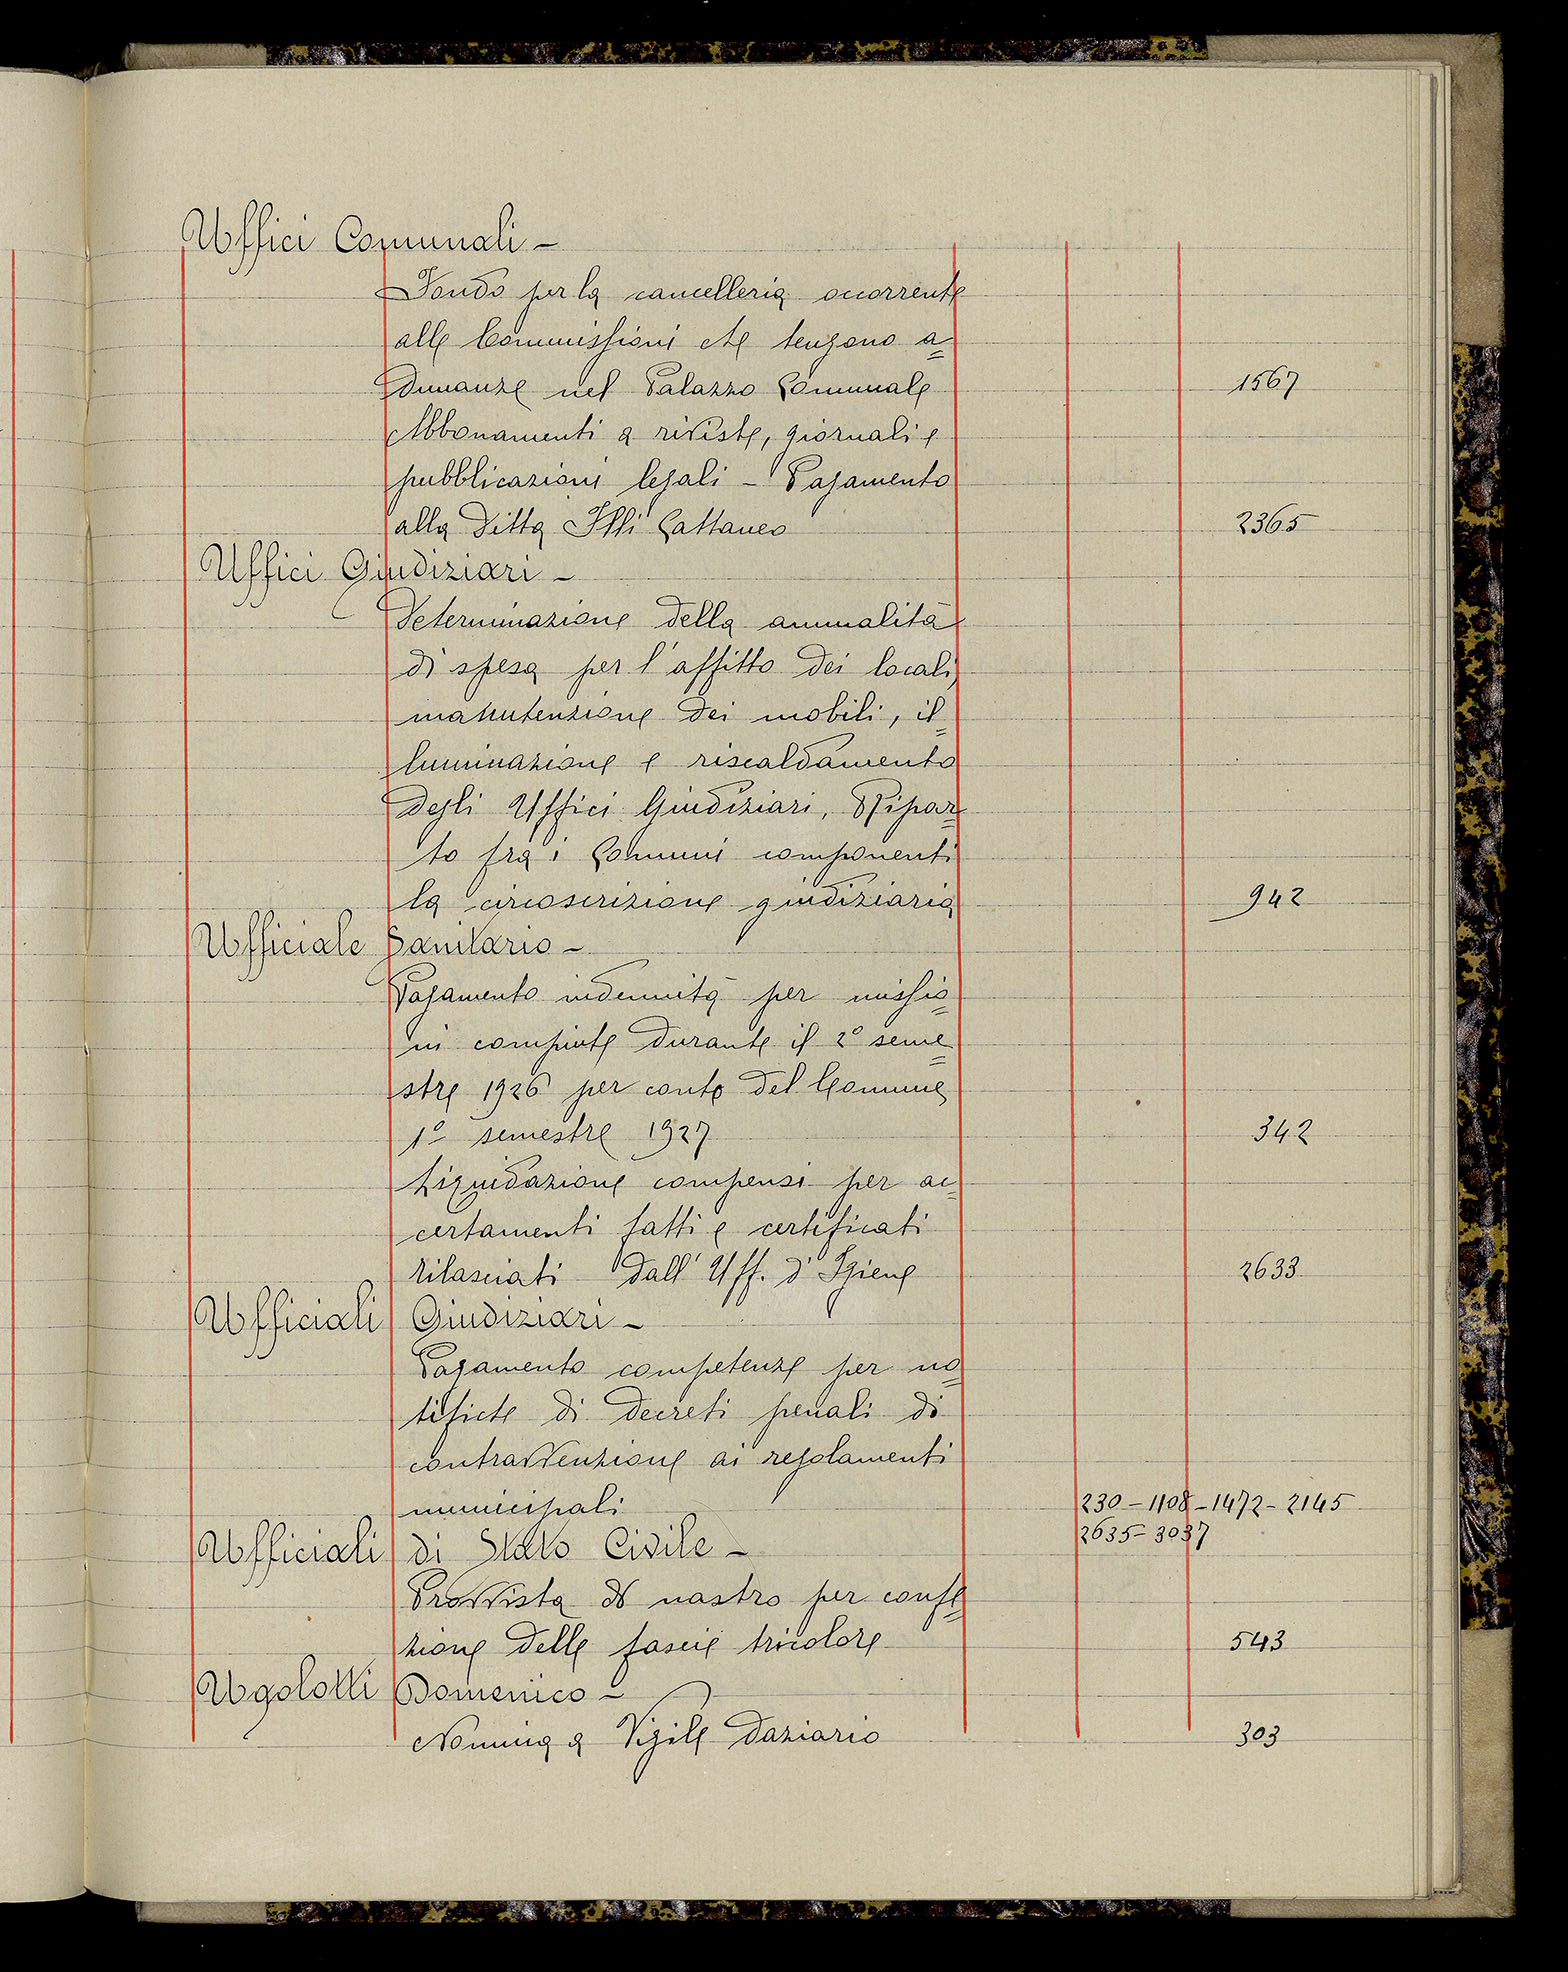 Uffici Comunali -
Fondo per la cancelleria occorrente
alle Commissioni che tengono a=
dunanze nel Palazzo Comunale 1567
Abbonamenti a riviste, giornali e
pubblicazioni legali - Pagamento
alla Ditta Flli Cattaneo 2365
Uffici Giudiziari -
Determinazione della annualità
di spesa per l'affitto dei locali,
manutenzione dei mobili, il=
luminazione e riscaldamento
degli Uffici Giudiziari, Ripar=
to fra i Comuni componenti
la circoscrizione giudiziaria 942
Ufficiale Sanitario -
Pagamento indennità per missio=
ni compiute durante il 2º seme=
stre 1926 per conto del Comune
1º semestre 1927 342
Liquidazione compensi per ac=
certamenti fatti e certificati
rilasciati dall'Uff. d'Igiene 2633
Ufficiali Giudiziari -
Pagamento competenze per no=
tifiche di decreti penali di
contravvenzione ai regolamenti
municipali 230 - 1108 - 1472 - 2145
2635 - 3037
Ufficiali di Stato Civile -
Provvista di nastro per confe=
zione delle fascie tricolore 543
Ugolotti Domenico -
Nomina a Vigile Daziario 303